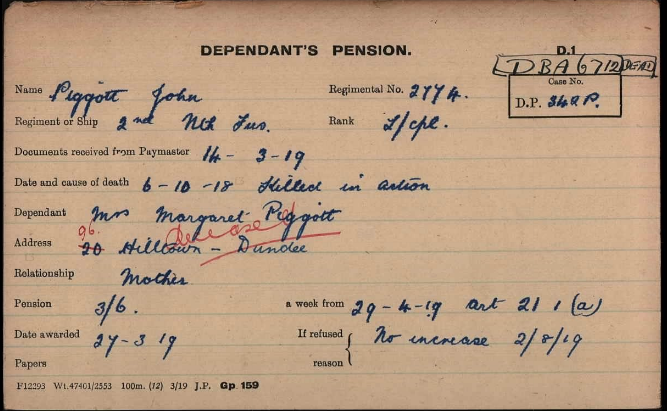 DEPENDANT'S PENSION. D.1
DBA 6712 DEAI
Name Piggott John Regimental No. 2774. Case No.
D.P. 342 P.
Regiment or Ship 2nd Nth Fus. Rank L/cpl.
Documents received from Paymaster 14 - 3 - 19
Date and cause of death 6-10-18 Killed in action
Dependant Mrs Margaret Piggott
deceased
96.
Address 20 Hilltown - Dundee
Relationship Mother
Pension 3/6. a week from 29-4-19 Art 21 1 (a)
Date awarded 27-3 19 If refused No increase 2/8/19
Papers reason
F12293 Wt.47401/2553 100m. (12) 3/19 J.P. Gp 159